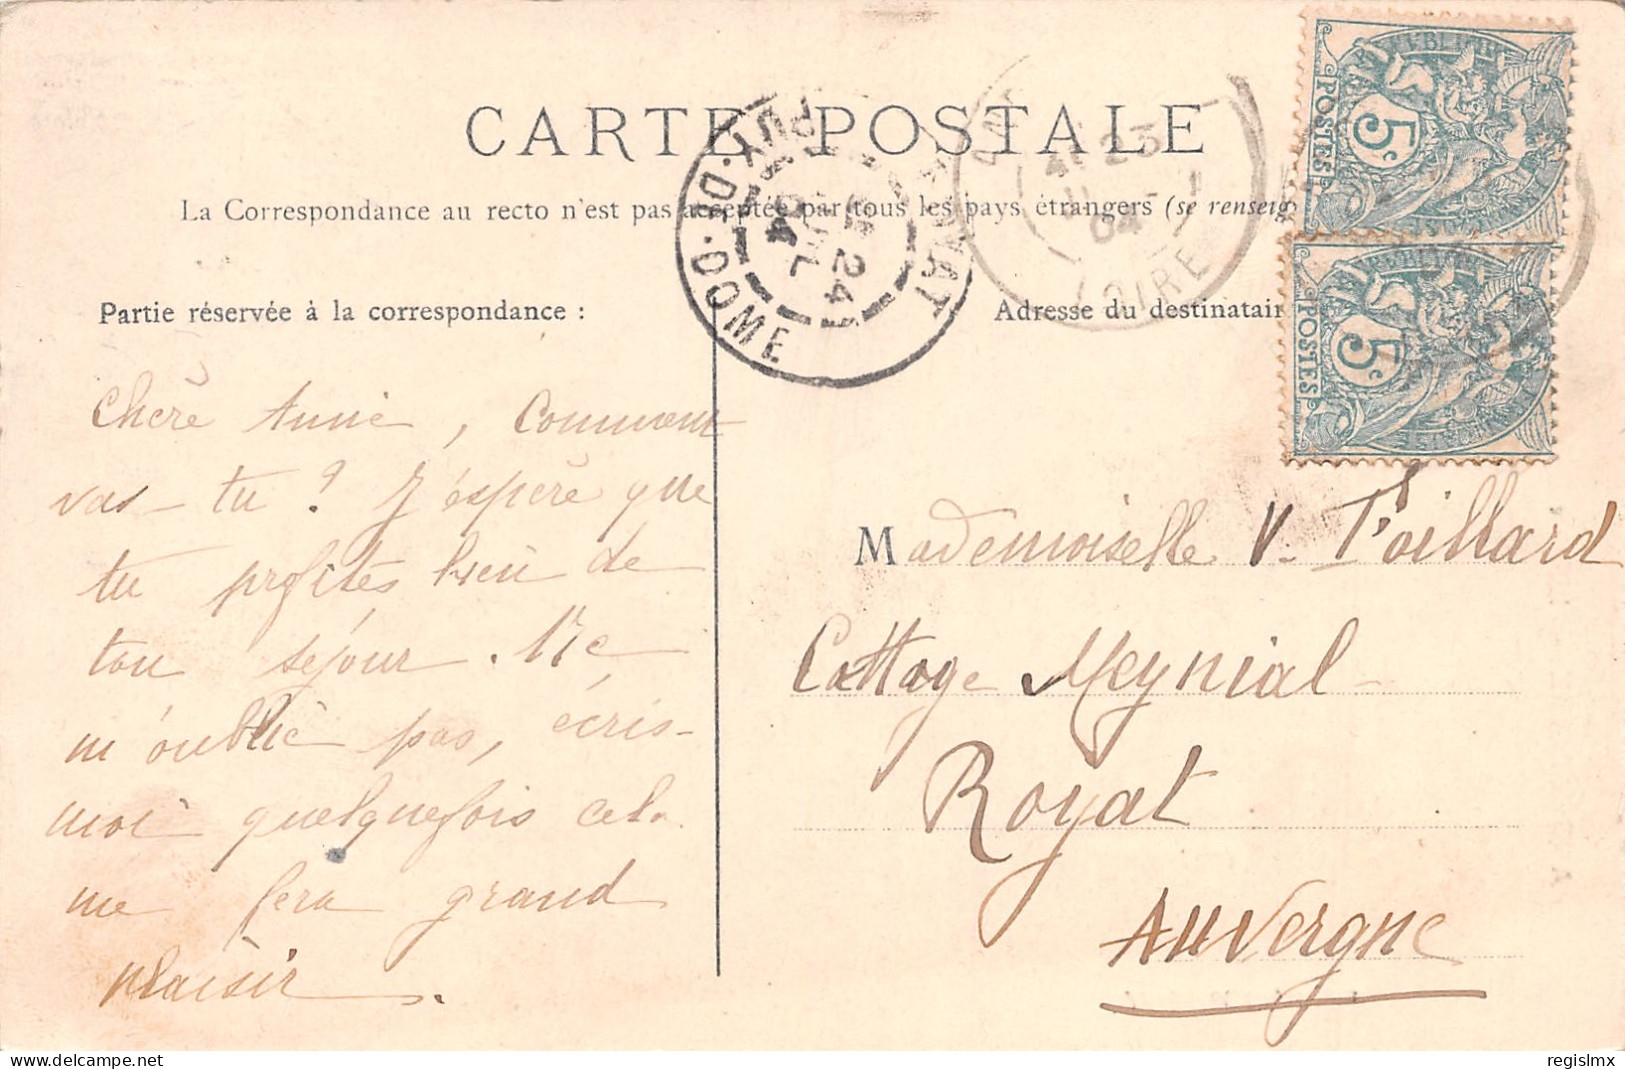 CARTE POSTALE
La Correspondance au recto n'est pas acceptée par tous les pays étrangers (se renseig
Partie réservée à la correspondance :
Chère Annie, Comment
vas-tu ? J'éspère que
tu profites bien de
ton séjour. Ne
m'oublie pas, écris-
moi quelquefois cela
me fera grand
plaisir.
Adresse du destinatair
Mademoiselle V.
Cottage Meynial
Royat
Auvergne
PUY-DE-DOME
ROYAT
24
JUIL
04
23
04
LOIRE
POSTES
5c
POSTES
5c
delcampe.net
regislmx